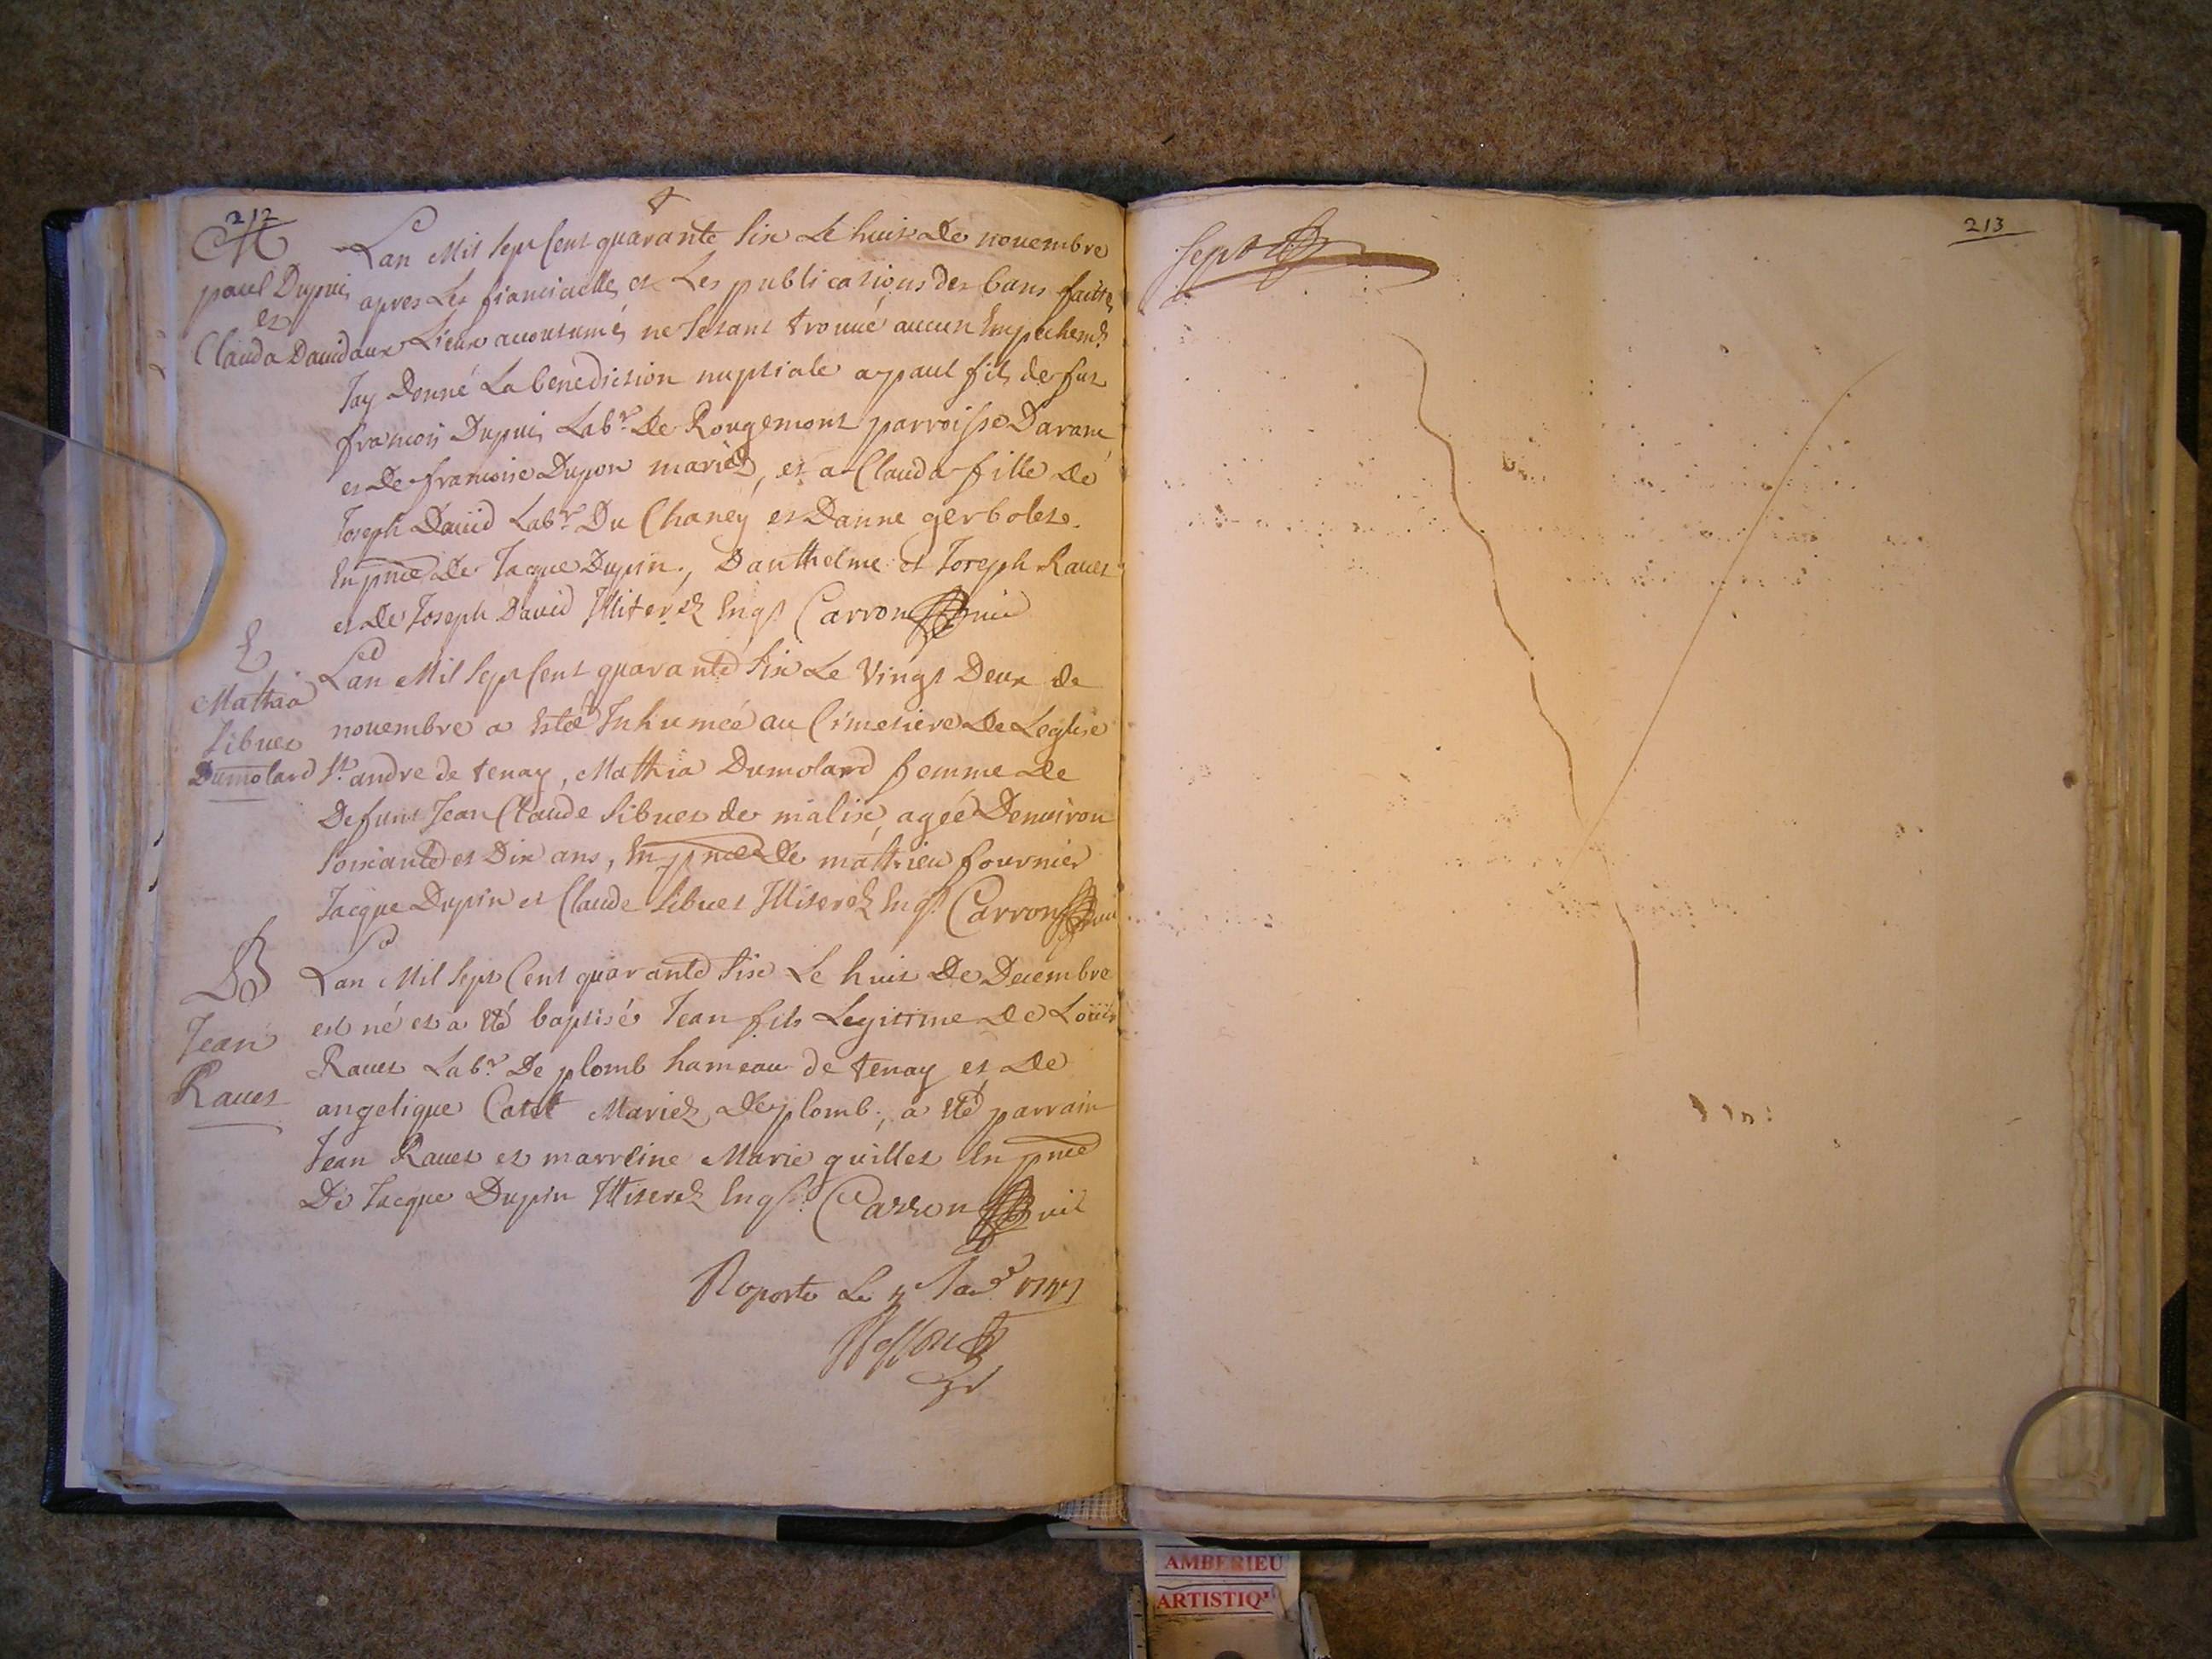 212
M
paul Dupuis
et
Clauda David
Lan Mil Sept Cent quarante Six Le huit De novembre
apres Les fiancialles et Les publications des bans faittes
aux Lieux accoutumés ne Setant trouvé aucun Empechemt
Jay Donné La benediction nuptiale a paul fils de fut
francois Dupuis Labr De Rougemont parroisse Daranc
et De francoise Dupon mariés, et a Clauda fille de
Joseph David Labr Du Chaney et Danne gerbolet
En pnce De Jacque Dupin, Danthelme et Joseph Ravet
et de Joseph David Illiterez Enqs Carron
E
Mathia
Sibuet
Dumolard
Lan Mil Sept Cent quarante Six Le Vingt Deux de
novembre a Esté Inhumée au Cimetiere De Leglise
St andre de tenay, Mathia Dumolard femme de
Defunt Jean Claude Sibuet de malix, agée Denviron
Soixante et Dix ans, En pnce De mathieu fournier
Jacque Dupin et Claude Sibuet Illiterez Enqs Carron
B
Jean
Ravet
Lan Mil Sept Cent quarante Six Le huit De Decembre
est né et a été baptisé Jean fils Legitime de Loüis
Ravet Labr De plomb hameau de tenay et De
angelique Catet Mariez De plomb, a été parrain
Jean Ravet et marreine Marie guillet En pnce
De Jacque Dupin Illiterez Enqs Carron
Le Janr
213
Sept
AMBERIEU
ARTISTIQ